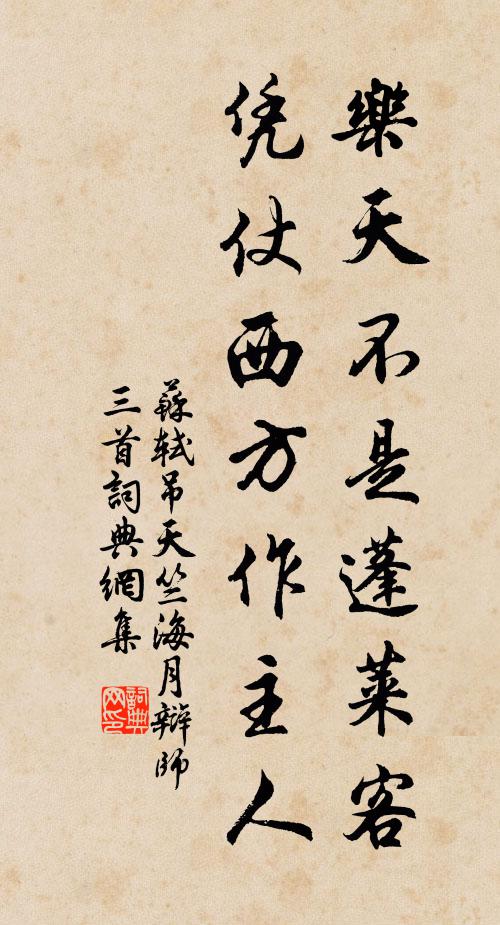 樂天不是蓬萊客
凭仗西方作主人
蘇軾吊天竺海月辯師
三首詞典網集
詞典网印